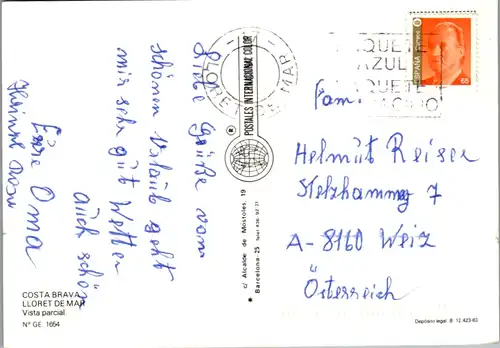 Liebe Grüße vom
schönen Urlaub geht
mir sehr gut Wetter
auch schön
Eure Oma
COSTA BRAVA
LLORET DE MAR
Vista parcial.
N° GE. 1654
LLORET DE MAR
POSTALES INTERNACIONAL COLOR
®
c/ Alcalde de Móstoles, 19
* Barcelona-25
PAQUETE
AZUL
PAQUETE
ESPAÑA
65
Fam.
Helmut Reiser
7
A-8160 Weiz
Österreich
Depósito legal: B. 12.423-83